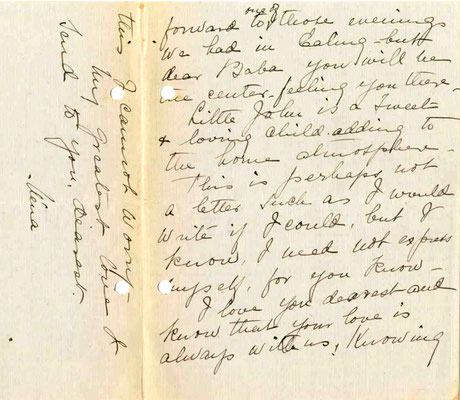 forward to one of those evenings
we had in Ealing - but
dear Baba you will be
the center - feeling you there -
Little John is a sweet
& loving child - adding to
the home atmosphere -
This is perhaps not
a letter such as I would
write if I could, but I
know, I need not express
myself, for you know -
I love you dearest - and
know that your love is
always with us, Knowing
this I cannot worry
My greatest love I
send to you, Dearest.
Nina